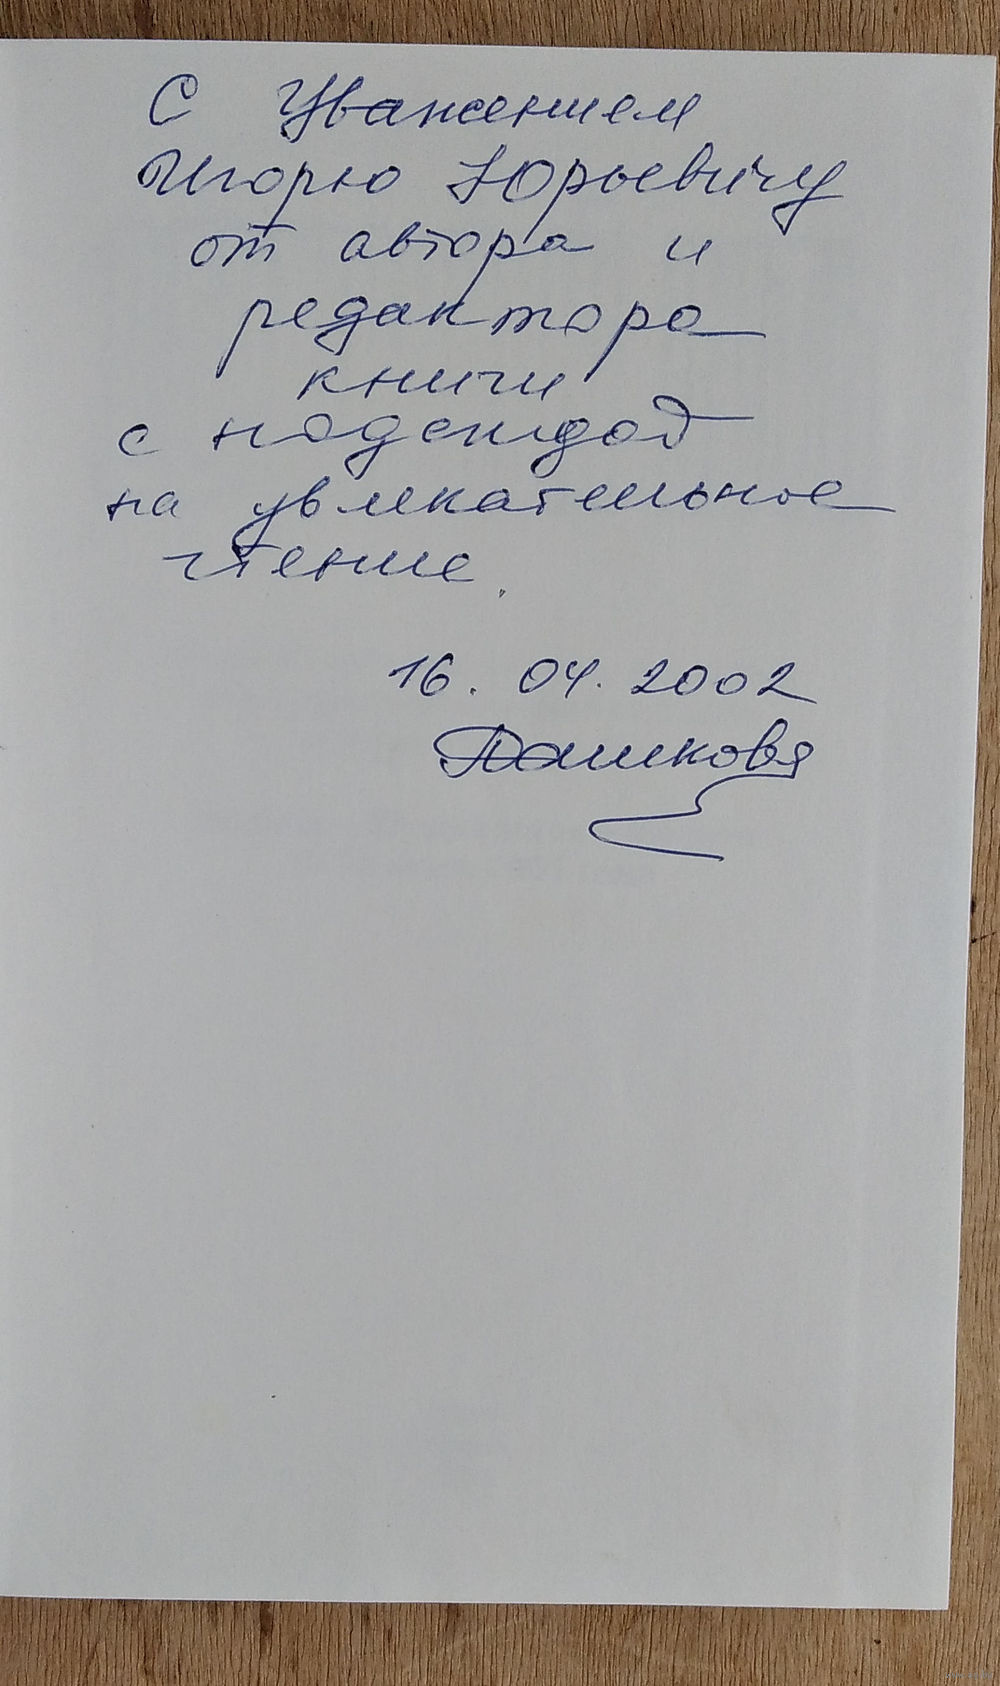 С Уважением
Игорю Юрьевичу
от автора и
редактора
книги
с надеждой
на увлекательное
чтение.
16. 04. 2002